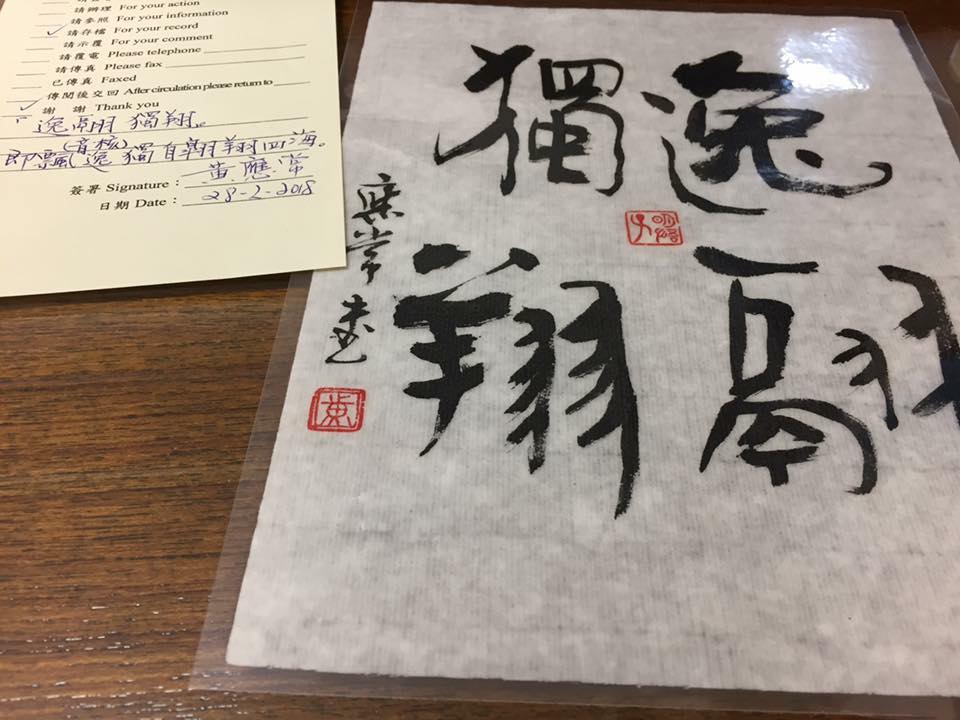 請辦理 For your action
請參照 For your information
✓ 請存檔 For your record
請示覆 For your comment
請覆電 Please telephone
請傳真 Please fax
已傳真 Faxed
傳閱後交回 After circulation please return to
✓ 謝 謝 Thank you
「逸翮獨翔。
(音核)
即飄逸獨自翱翔四海。
簽署 Signature : 黃應常
日期 Date : 28-2-2018
逸翮
獨翔
常
黃